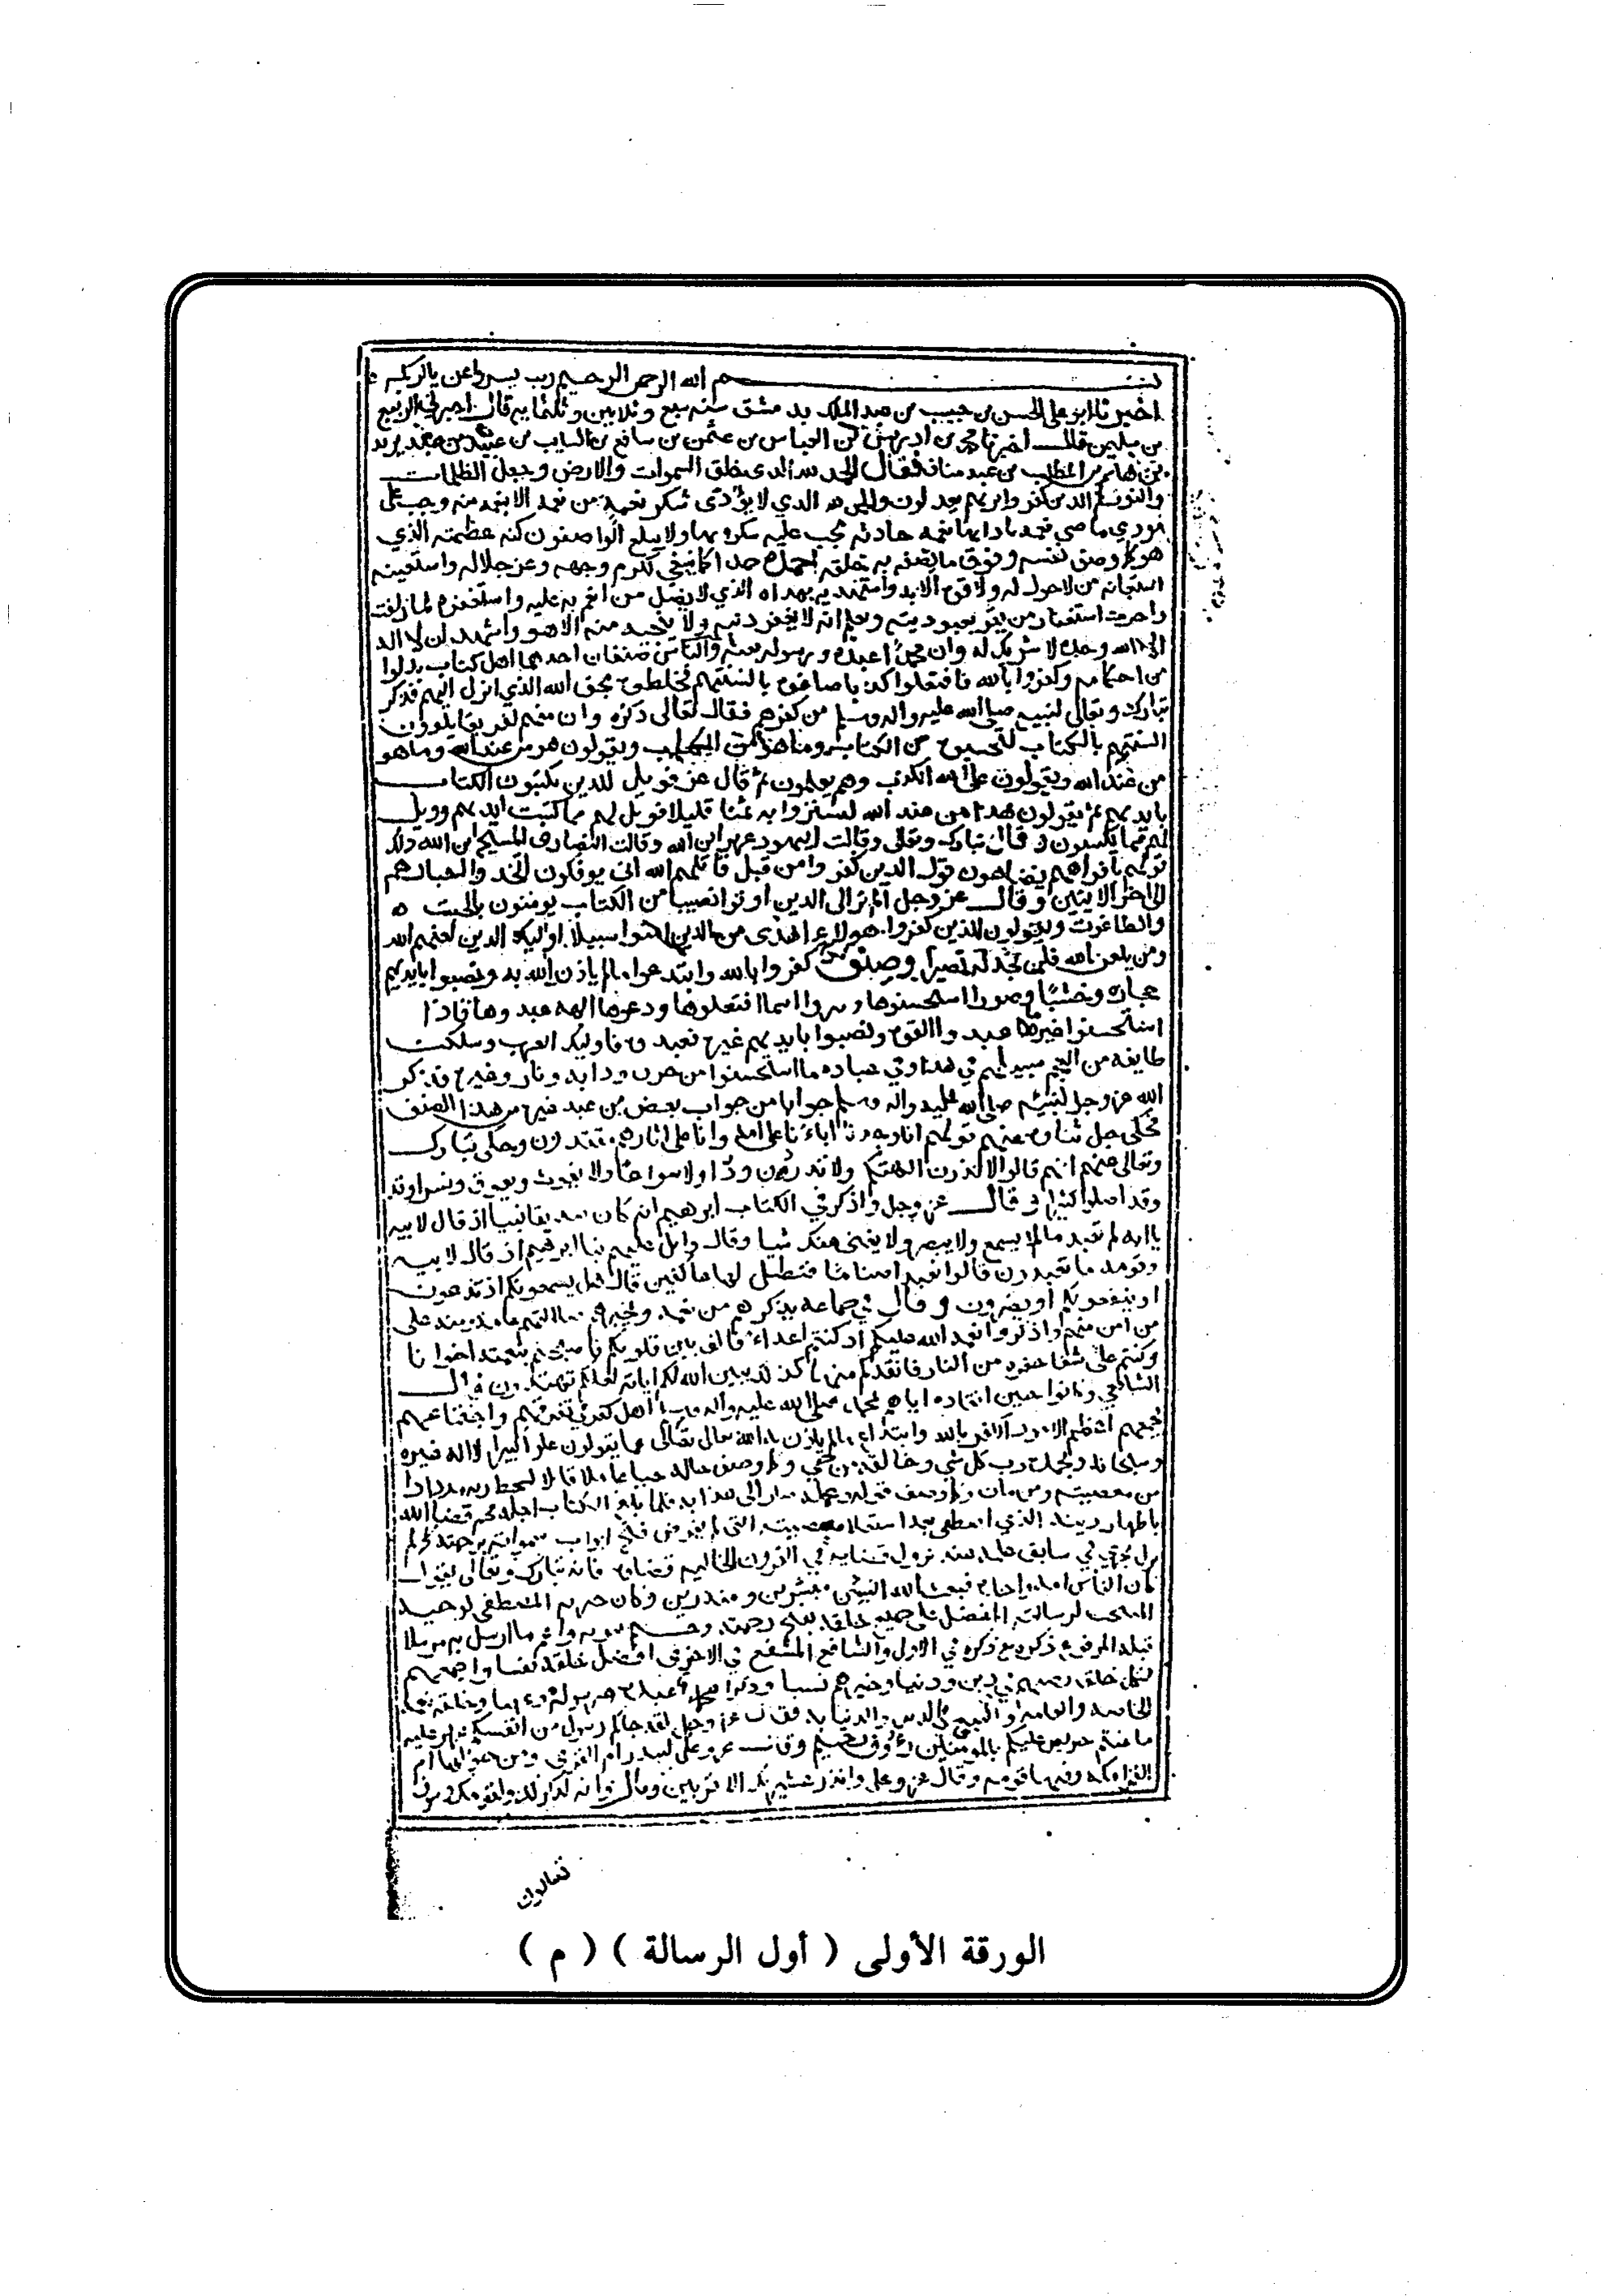 بسم الله الرحمن الرحيم رب يسر واعن يا كريم
اخبرنا ابو علي الحسن بن حبيب بن عبد الملك بدمشق سنه سبع وثلاثين وثلثمايه قال اخبرني الربيع
بن سليمن قال اخبرنا محمد بن ادريس بن العباس بن عثمن بن شافع بن السايب بن عبيد بن عبد يزيد
بن هاشم بن المطلب بن عبد مناف فقال الحمد لله الدى خلق السموات والارض وجعل الظلمات
والنور ثم الدين كفروا بربهم يعدلون والحمد لله الدي لا يؤدى شكر نعمه من نعمه الا بنعمه منه توجب على
مودي ماضي نعمه بادايها نعمه حادثه يجب عليه شكره بها ولا يبلغ الواصفون كنه عظمته الذي
هو كما وصف نفسه وفوق ما يصفه به خلقه احمده حمدا كما ينبغي لكرم وجهه وعز جلاله واستعينه
استعانه من لا حول له ولا قوه الا به واستهديه بهداه الذي لا يضل من انعم به عليه واستغفره لما ازلفت
واخرت استغفار من يقر بعبوديته ويعلم انه لا يغفر ذنبه ولا ينجيه منه الا هو واشهد ان لا اله
الا الله وحده لا شريك له وان محمدا عبده ورسوله بعثه والناس صنفان احدهما اهل كتاب بدلوا
من احكامه وكفروا بالله فافتعلوا كذبا صاغوه بالسنتهم فخلطوه بحق الله الذي انزل اليهم فذكر
تبارك وتعالى لنبيه صلى الله عليه واله وسلم من كفرهم فقال تعالى ذكره وان منهم لفريقا يلوون
السنتهم بالكتاب لتحسبوه من الكتاب وما هو من الكتاب ويقولون هو من عند الله وما هو
من عند الله ويقولون على الله الكذب وهم يعلمون ثم قال عز فويل للدين يكتبون الكتاب
بايديهم ثم يقولون هدا من عند الله ليشتروا به ثمنا قليلا فويل لهم مما كتبت ايديهم وويل
لهم مما يكسبون وقال تبارك وتعالى وقالت اليهود عزير ابن الله وقالت النصارى المسيح ابن الله ذلك
قولهم بافواههم يضاهون قول الدين كفروا من قبل قاتلهم الله انى يوفكون اتخدوا احبارهم
الى اخر الايتين وقال عز وجل الم تر الى الدين اوتوا نصيبا من الكتاب يومنون بالجبت
والطاغوت ويقولون للذين كفروا هولاء اهدى من الدين امنوا سبيلا اوليك الدين لعنهم الله
ومن يلعن الله فلن تجد له نصيرا وصنف كفروا بالله وابتدعوا ما لم ياذن الله به ونصبوا بايديهم
حجاره وخشبا وصورا استحسنوها ونبزوا اسما افتعلوها ودعوها الهه عبدوها فاذا
استحسنوا غير ما عبدوا القوه ونصبوا بايديهم غيره فعبدوه فاوليك العرب وسلكت
طايفه من العجم سبيلهم في هدا وفي عباده ما استحسنوا من حوت ودابه ونار وغيره فذكر
الله عز وجل لنبيه صلى الله عليه واله وسلم جوابا من جواب بعض من عبد غيره من هدا الصنف
فحكى جل ثناوه عنهم قولهم انا وجدنا اباءنا على امه وانا على اثارهم مقتدون وحكى تبارك
وتعالى عنهم انهم قالوا لا تذرن الهتكم ولا تذرن ودا ولا سواعا ولا يغوث ويعوق ونسرا وقد
وقد اضلوا كثيرا وقال عز وجل واذكر في الكتاب ابرهيم انه كان صديقا نبيا اذ قال لابيه
يا ابه لم تعبد ما لا يسمع ولا يبصر ولا يغنى عنك شيا وقال واتل عليهم نبا ابرهيم اذ قال لابيه
وقومه ما تعبدون قالوا نعبد اصناما فنظل لها عاكفين قال هل يسمعونكم اذ تدعون
او ينفعونكم او يضرون وقال في جماعه يذكرهم من نعمه
من امن منهم واذكروا نعمه الله عليكم اذ كنتم اعداء فالف بين قلوبكم فاصبحتم بنعمته اخوانا
وكنتم على شفا حفره من النار فانقذكم منها كذلك يبين الله لكم اياته لعلكم تهتدون قال
الشافعي وكانوا حين انقاذه اياهم بمحمد صلى الله عليه واله وسلم اهل كفر في تفرقهم واجتماعهم
يجمعهم اعظم الامور الكفر بالله وابتداع ما لم ياذن به الله تعالى عما يقولون علوا كبيرا لا اله غيره
وسبحانه وبحمده رب كل شي وخالقه من حيي
باظهار دينه الذي اصطفى بعد استعلا معصيته التي لم يرض فتح ابواب سمواته برحمته كما لم
يزل يجري في سابق علمه عند نزول قضايه في القرون الخاليه قضاوه فانه تبارك وتعالى يقول
كان الناس امه واحده فبعث الله النبيين مبشرين ومنذرين وكان خيرته المصطفى لوحيه
المنتخب لرسالته المفضل على جميع خلقه بفتح رحمته
قبله المرفوع ذكره مع ذكره في الاولى والشافع المشفع في الاخرى افضل خلقه نفسا واجمعهم
لكل خلق رضيه في دين ودنيا وخيرهم نسبا ودارا محمدا عبده ورسوله
الخاصه والعامه والنفع في الدين والدنيا به فقال عز وجل لقد جاكم رسول من انفسكم عزيز عليه
ما عنتم حريص عليكم بالمومنين رؤوف رحيم وقال عز وعلى لتنذر ام القرى ومن حولها ام
القرا مكه وفيها قومه وقال عز وعلى وانذر عشيرتك الاقربين وقال وانه لذكر لك ولقومك وسوف
تسالون
الورقة الأولى ( أول الرسالة ) ( م )